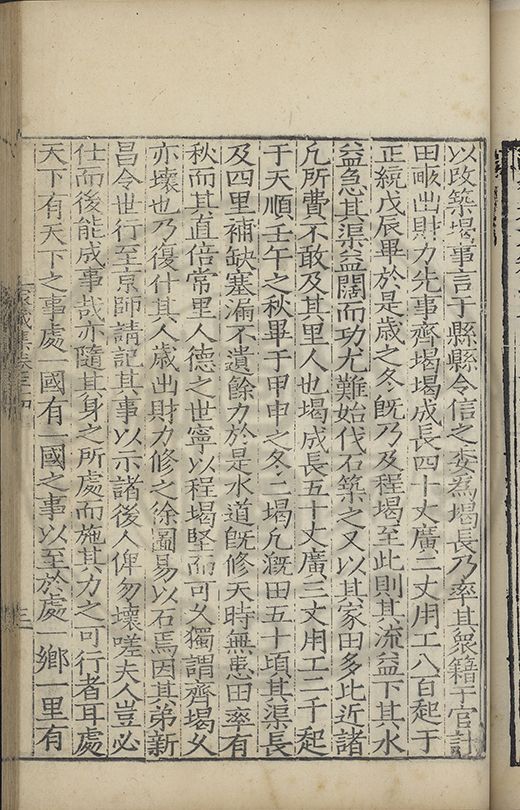 以改築堨事言于縣縣令信之委為堨長乃率其衆籍于官計
田畝出財力先事齊堨堨成長四十丈廣二丈用工八百起于
正統戊辰畢於是歳之冬旣乃及程堨至此則其流益下其水
益急其渠益闊而功尤難始伐石築之又以其家田多比近諸
凢所費不敢及其里人也堨成長五十丈廣三丈用工二千起
于天順壬午之秋畢于甲申之冬二堨凢漑田五十頃其渠長
及四里補缺塞漏不遺餘力於是水道旣修天時無患田率有
秋而其直倍常里人德之世寧以程堨堅而可久獨謂齊堨久
亦壞也乃復什其人歳出財力修之徐圖易以石焉因其弟新
昌令世行至京師請記其事以示諸後人俾勿壞嗟夫人豈必
仕而後能成事哉亦隨其身之所處而施其力之可行者耳處
天下有天下之事處一國有一國之事以至於處一鄉一里有